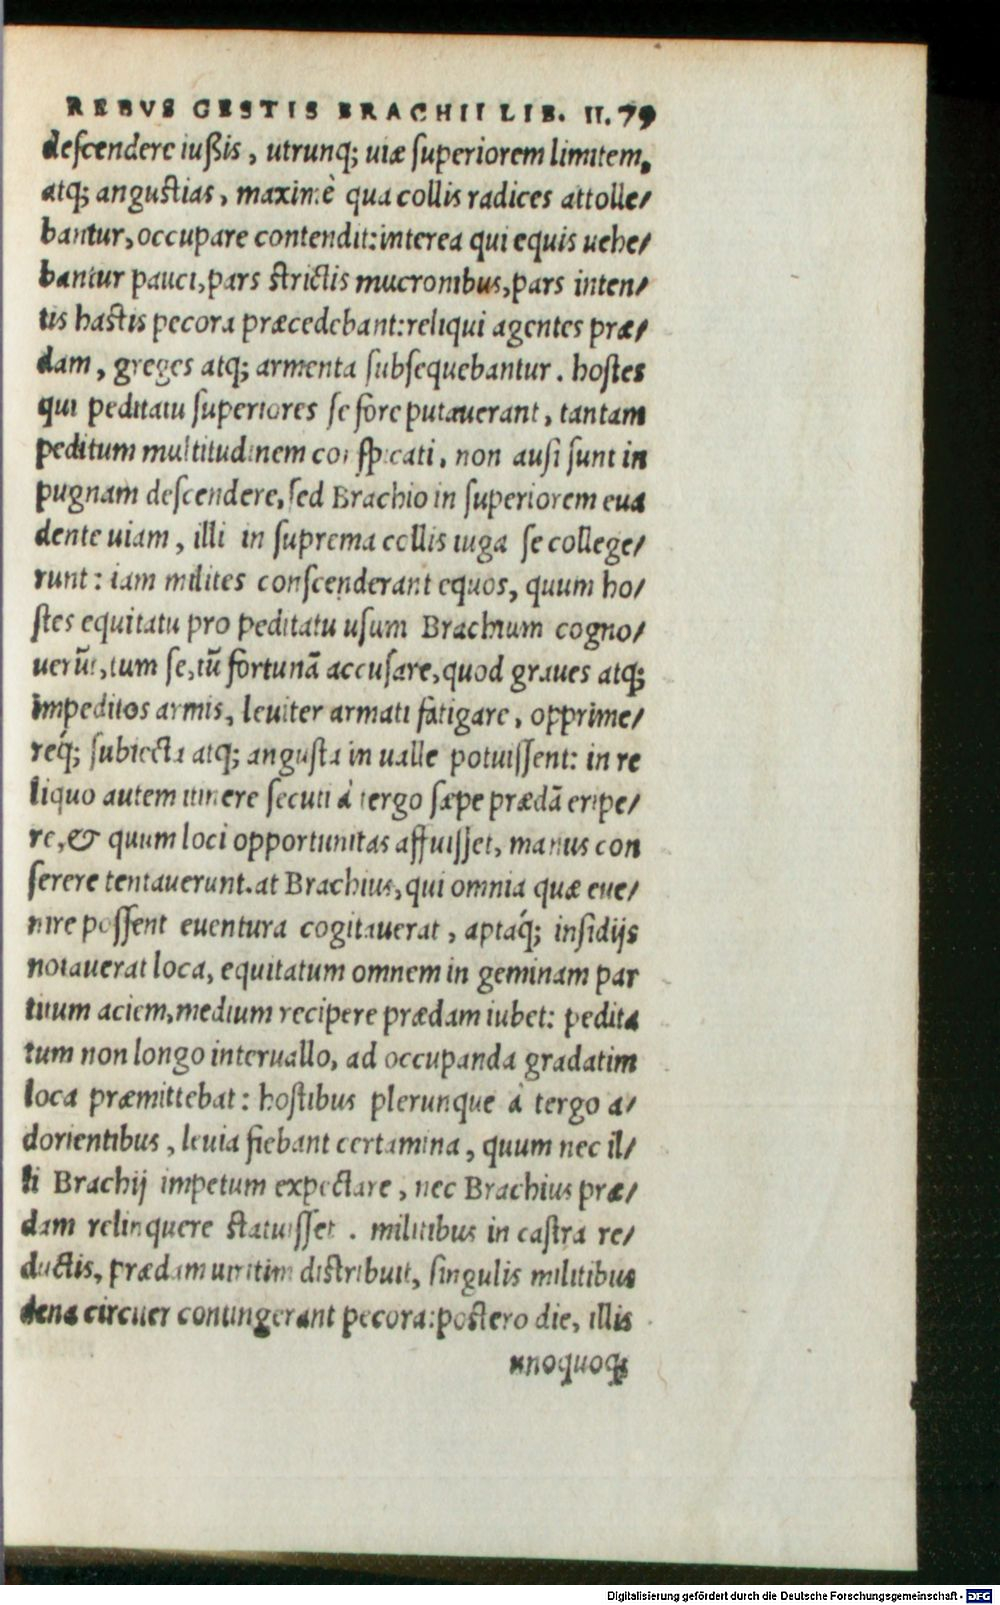 REBVS GESTIS BRACHII LIB. II. 79
descendere iußis, utrunq; uiæ superiorem limitem,
atq; angustias, maximè qua collis radices attolle/
bantur, occupare contendit: interea qui equis uehe/
bantur pauci, pars strictis mucronibus, pars inten/
tis hastis pecora præcedebant: reliqui agentes præ/
dam, greges atq; armenta subsequebantur. hostes
qui peditatu superiores se fore putauerant, tantam
peditum multitudinem conspicati, non ausi sunt in
pugnam descendere, sed Brachio in superiorem eua
dente uiam, illi in suprema collis iuga se college/
runt: iam milites conscenderant equos, quum ho/
stes equitatu pro peditatu usum Brachium cogno/
uerūt, tum se, tū fortunā accusare, quod graues atq;
impeditos armis, leuiter armati fatigare, opprime/
req́; subiecta atq; angusta in ualle potuissent: in re
liquo autem itinere secuti à tergo sæpe prædā eripe/
re, & quum loci opportunitas affuisset, manus con
serere tentauerunt. at Brachius, qui omnia quæ eue/
nire possent euentura cogitauerat, aptaq́; insidijs
notauerat loca, equitatum omnem in geminam par
titum aciem, medium recipere prædam iubet: pedita
tum non longo interuallo, ad occupanda gradatim
loca præmittebat: hostibus plerunque à tergo a/
dorientibus, leuia fiebant certamina, quum nec il/
li Brachij impetum expectare, nec Brachius præ/
dam relinquere statuisset. militibus in castra re/
ductis, prædam uiritim distribuit, singulis militibus
dena circiter contingerant pecora: postero die, illis
unoquoq;
Digitalisierung gefördert durch die Deutsche Forschungsgemeinschaft - DFG